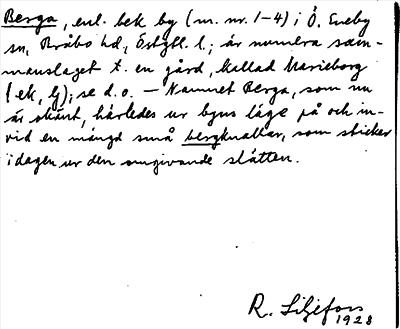 Berga, enl. bek by (m. nr. 1-4) i Ö. Eneby
sn, Bråbo hd, Östgötl. l.; är numera sam-
manslaget t. en gård, kallad Marieborg
(ek, lj); se d. o. — Namnet Berga, som nu
är okänt, härledes ur byns läge på och in-
vid en mängd små bergknallar, som sticker
i dagen ur den omgivande slätten.
R. Liljefors
1928